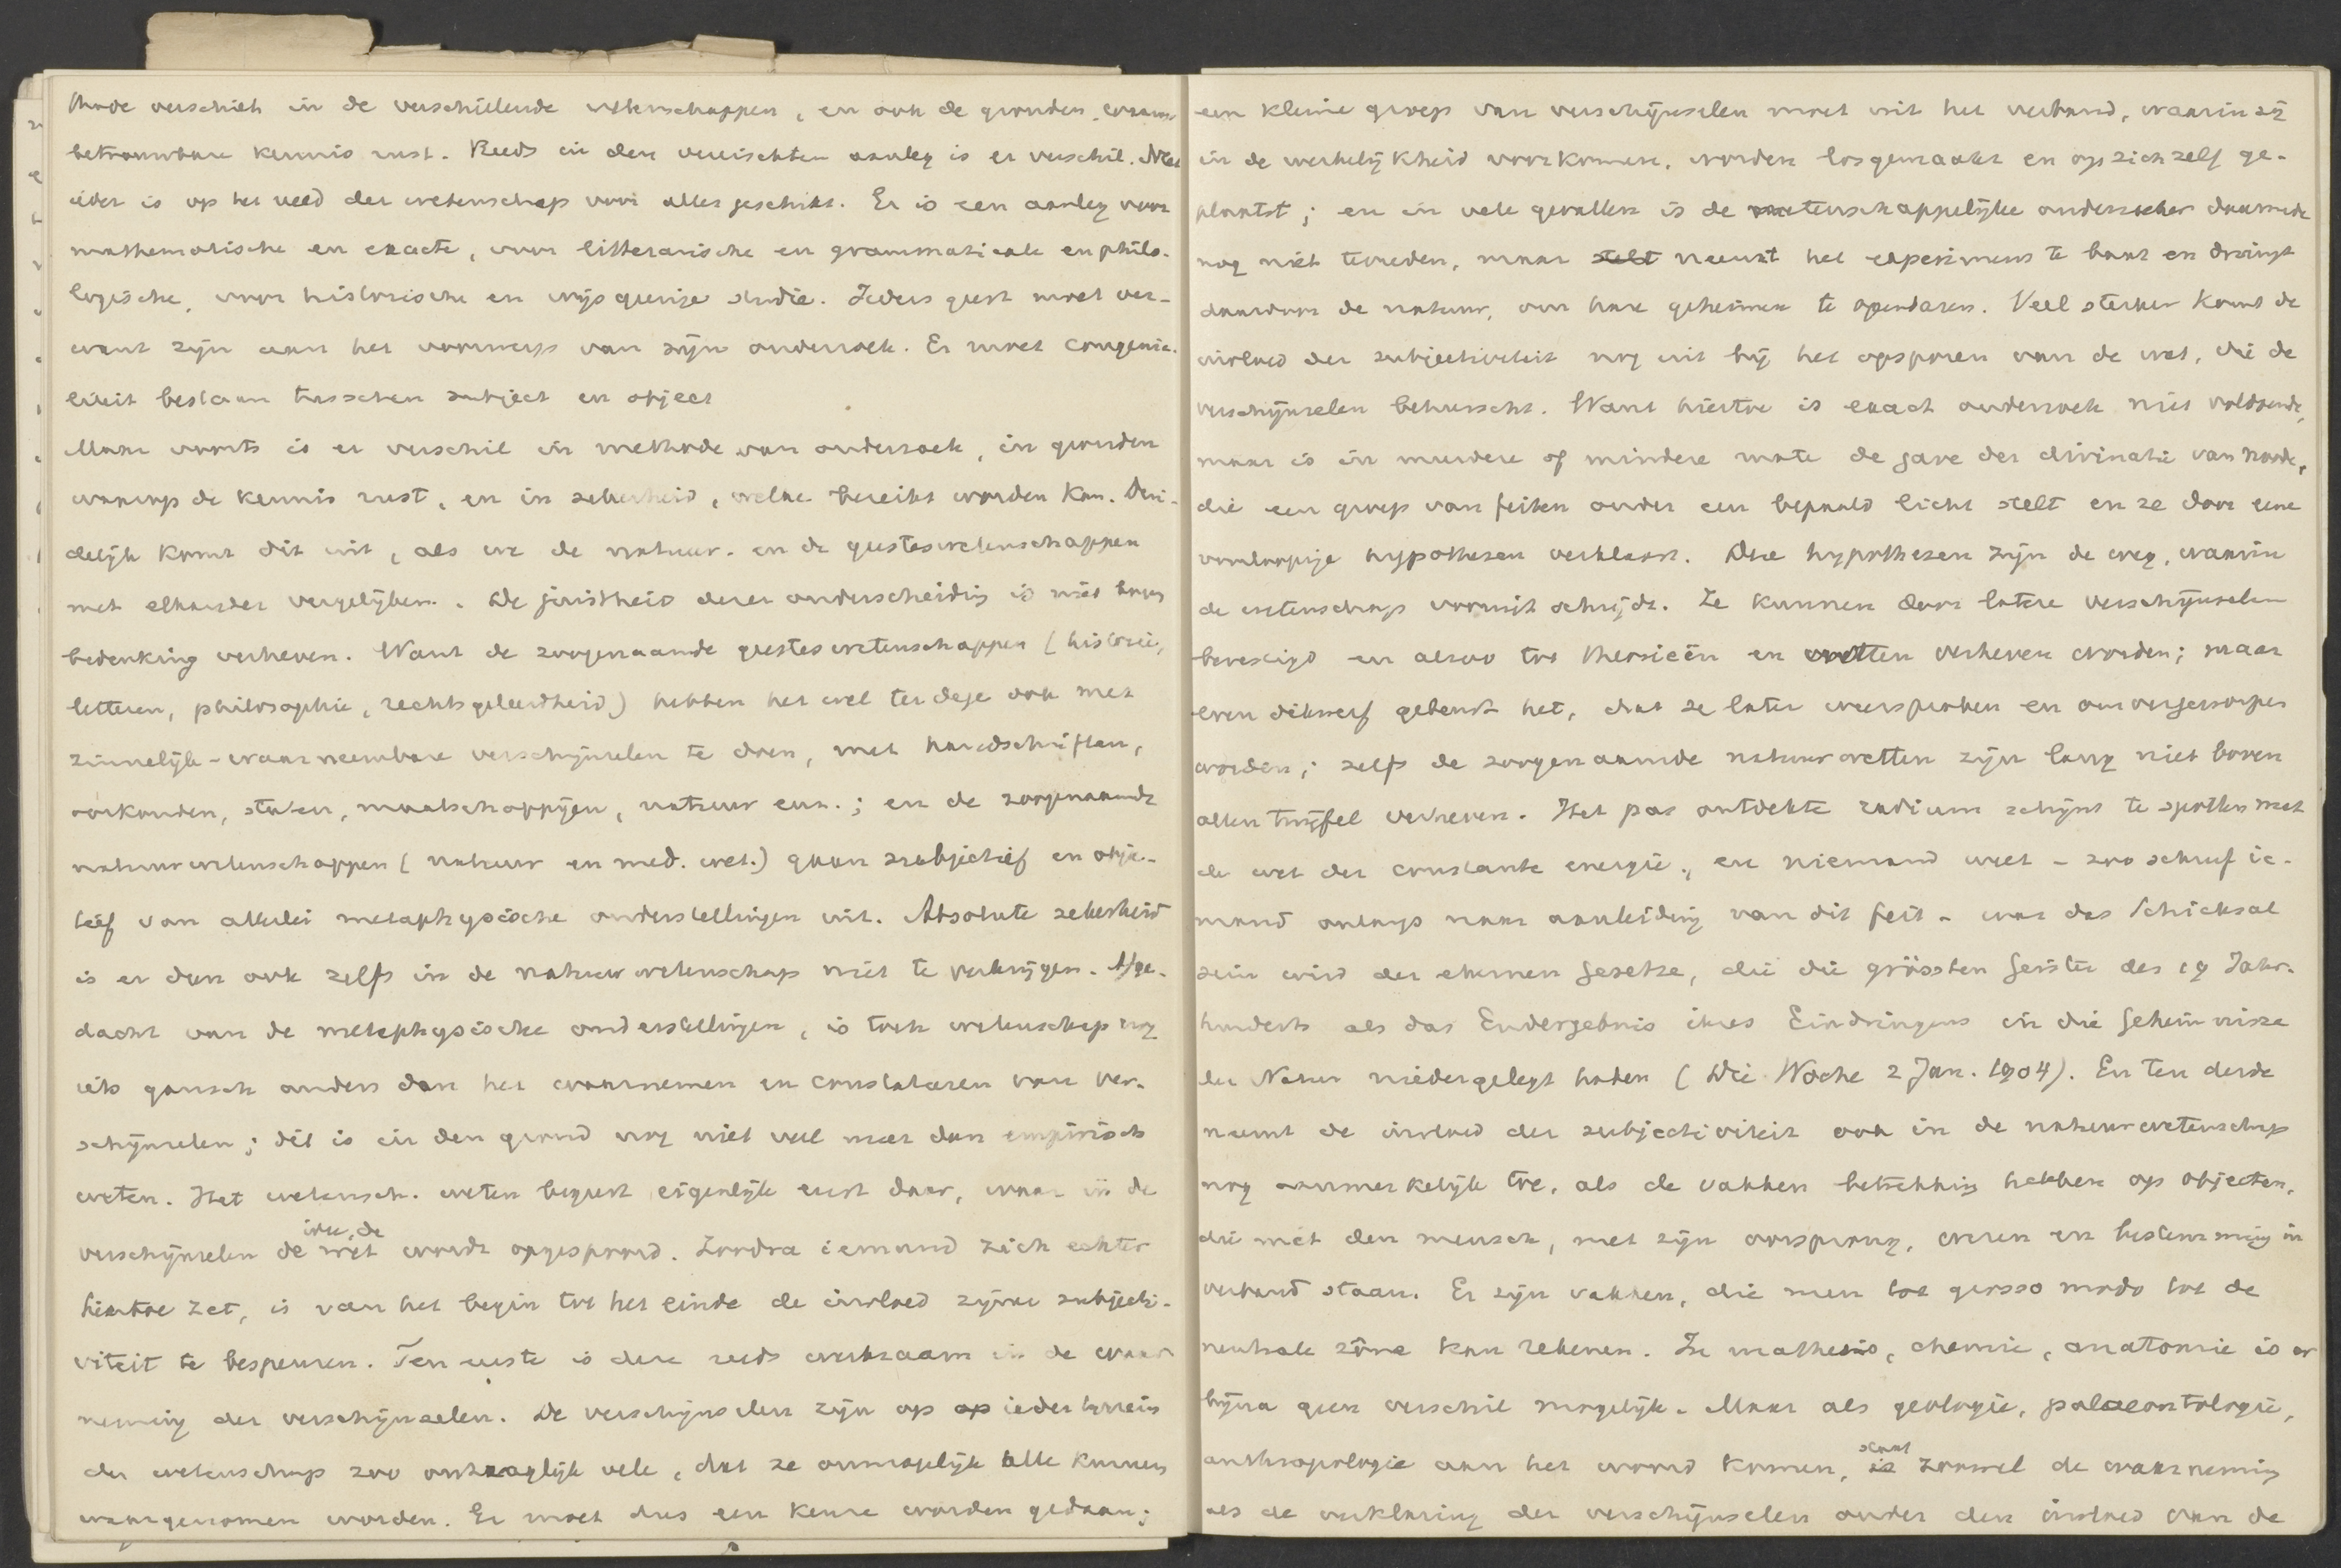 thode verschilt in de verschillende wetenschappen, en ook de gronden, waarop
betrouwbare kennis rust. Reeds in den vereischten aanleg is er verschil. Niet
ieder is op het veld der wetenschap voor alles geschikt. Er is een aanleg voor
mathematische en exacte, voor litterarische en grammaticale en philo-
logische, voor historische en wijsgeerige studie. Ieders geest moet ver-
want zijn aan het voorwerp van zijn onderzoek. Er moet congenia-
liteit bestaan tusschen subject en object
Maar voorts is er verschil in methode van onderzoek, in gronden
waarop de kennis rust, en in zekerheid, welke bereikt worden kan. Dui-
delijk komt dit uit, als we de natuur- en de geesteswetenschappen
met elkander vergelijken. De juistheid dezer onderscheiding is niet boven
bedenking verheven. Want de zoogenaamde geesteswetenschappen (historie,
letteren, philosophie, rechtsgeleerdheid) hebben het wel terdege ook met
zinnelijk-waarneembare verschijnselen te doen, met handschriften,
oorkonden, staten, maatschappijen, natuur enz.; en de zoogenaamde
natuurwetenschappen (natuur en med. wet.) gaan subjectief en objec-
tief van allerlei metaphysische onderstellingen uit. Absolute zekerheid
is er dan ook zelfs in de natuurwetenschap niet te verkrijgen. Afge-
dacht van de metaphysische onderstellingen, is toch wetenschap nog
iets gansch anders dan het waarnemen en constateeren van ver-
schijnselen; dit is in den grond nog niet veel meer dan empirisch
weten. Het wetensch. weten begint eigenlijk eerst daar, waar in de
verschijnselen de idee, de wet wordt opgespoord. Zoodra iemand zich echter
hiertoe zet, is van het begin tot het einde de invloed zijner subjecti-
viteit te bespeuren. Ten eerste is deze reeds werkzaam in de waar
neming der verschijnselen. De verschijnselen zijn op op ieder terrein
der wetenschap zoo ontzaglijk vele, dat ze onmogelijk alle kunnen
waargenomen worden. Er moet dus een keuze worden gedaan;
een kleine groep van verschijnselen moet uit het verband, waarin zij
in de werkelijkheid voorkomen, worden losgemaakt en op zichzelf ge-
plaatst; en in vele gevallen is de wetenschappelijke onderzoeker daarmede
nog niet tevreden, maar stelt neemt het experiment te baat en dringt
daardoor de natuur, om hare geheimen te openbaren. Veel sterker komt de
invloed der subjectiviteit nog uit bij het opsporen van de wet, die de
verschijnselen beheerscht. Want hiertoe is exact onderzoek niet voldoende,
maar is in meerdere of mindere mate de gave der divinatie van noode,
die een groep van feiten onder een bepaald licht stelt en ze door eene
voorloopige hypothesen verklaart. Die hypothesen zijn de weg, waarin
de wetenschap vooruit schrijdt. Ze kunnen door latere verschijnselen
bevestigd en alzoo tot theorieën en wetten verheven worden; maar
even dikwerf gebeurt het, dat ze later weersproken en omvergeworpen
worden; zelfs de zoogenaamde natuurwetten zijn lang niet boven
allen twijfel verheven. Het pas ontdekte radium schijnt te spotten met
de wet der constante energie, en niemand weet - zoo schreef ie-
mand onlangs naar aanleiding van dit feit - was das Schicksal
sein wird der ehernen Gesetze, die die grössten Geister des 19 Jahr-
hunderts als das Endergebnis ihres Eindringens in die Geheimnisse
der Natur niedergelegt haben (Die Woche 2 Jan. 1904). En ten derde
neemt de invloed der subjectiviteit ook in de natuurwetenschap
nog aanmerkelijk toe, als de vakken betrekking hebben op objecten,
die met den mensch, met zijn oorsprong, wezen en bestemming in
verband staan. Er zijn vakken, die men tot grosso modo tot de
neutrale zône kan rekenen. In mathesis, chemie, anatomie is er
bijna geen verschil mogelijk. Maar als geologie, palaeontologie,
anthropologie aan het woord komen, is staat zoowel de waarneming
als de verklaring der verschijnselen onder den invloed van de